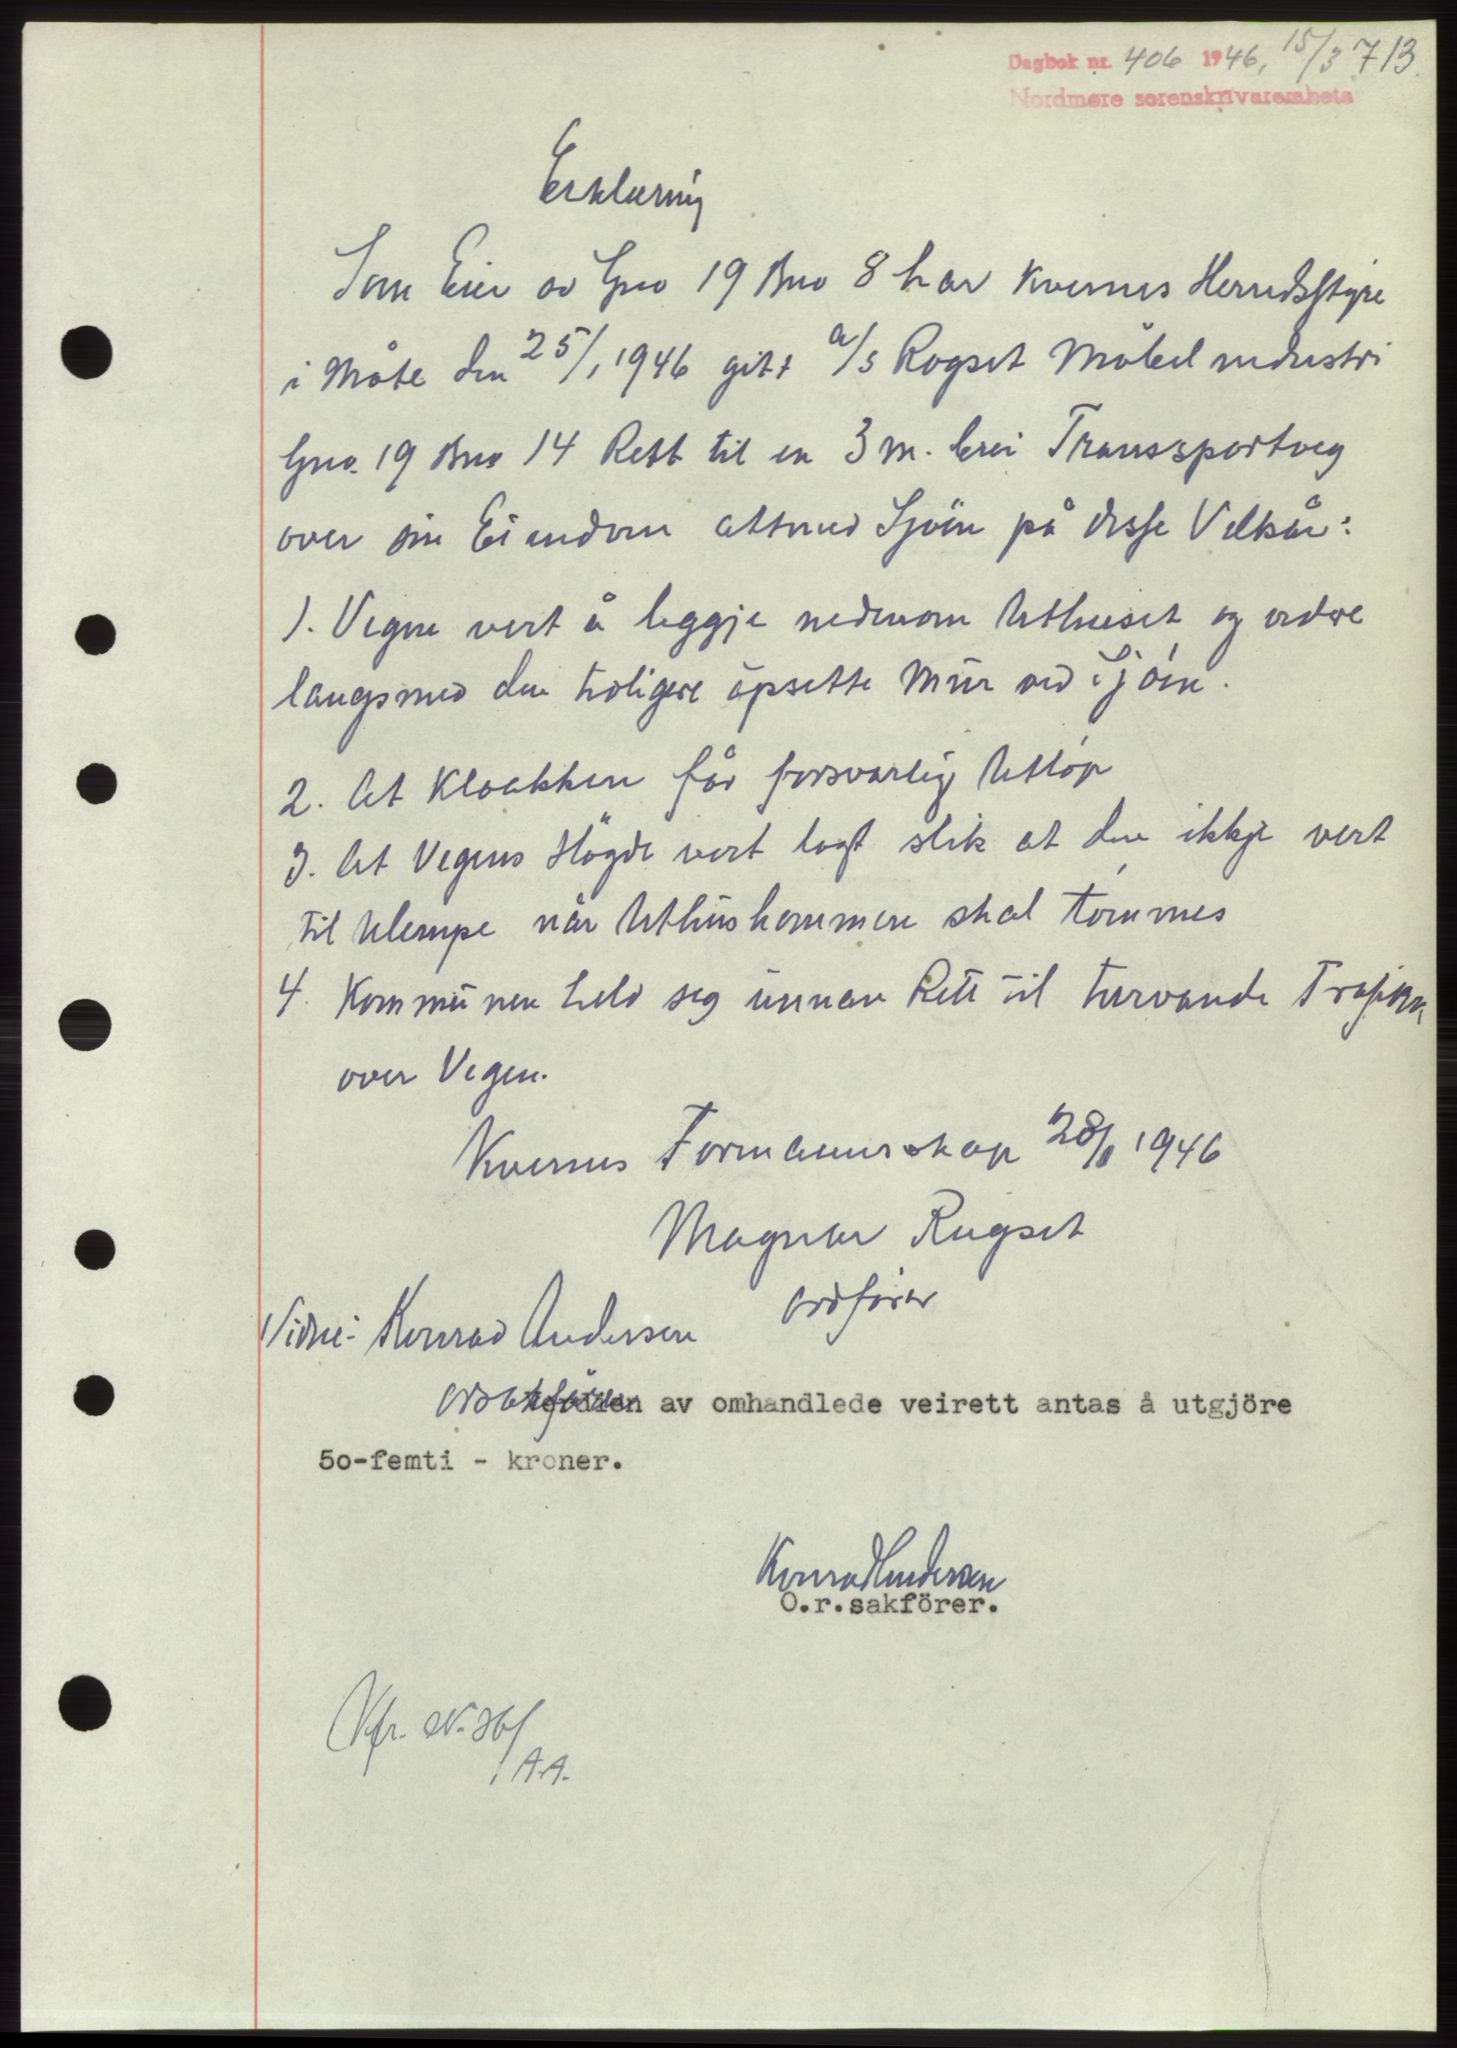 Dagbok nr. 406 1946, 15/3 713.
Nordmøre sorenskrivarembete
Erklæring
Som Eier av Gno 19 Bno 8 har Kvernes Herredsstyre
i Møte den 25/1 1946 gitt a/s Rogset Møbelindustri
Gno. 19 Bno 14 Rett til en 3 m. brei Transsportveg
over sin Eiendom attmed Sjöen på disse Vilkår:
1. Vegne vert å leggje nedenom Uthuset og vidre
langsmed den tidligere opsette Mur ved Sjöen.
2. At Kloakken får forsvarlig Utlöp
3. At Vegens Högde vert lagt slik at den ikkje vert
til Ulempe når Uthuskommen skal tömmes
4. Kommunen held seg unnan Rett til turvande Trafikk
over Vegen.
Kvernes Formannskap 28/1 1946
Magnar Rogset
ordförer
Vidne: Konrad Andersen
av omhandlede veirett antas å utgjöre
5o-femti - kroner.
Konrad Andersen
O.r.sakförer.
Kfr. N. 361
A.A.